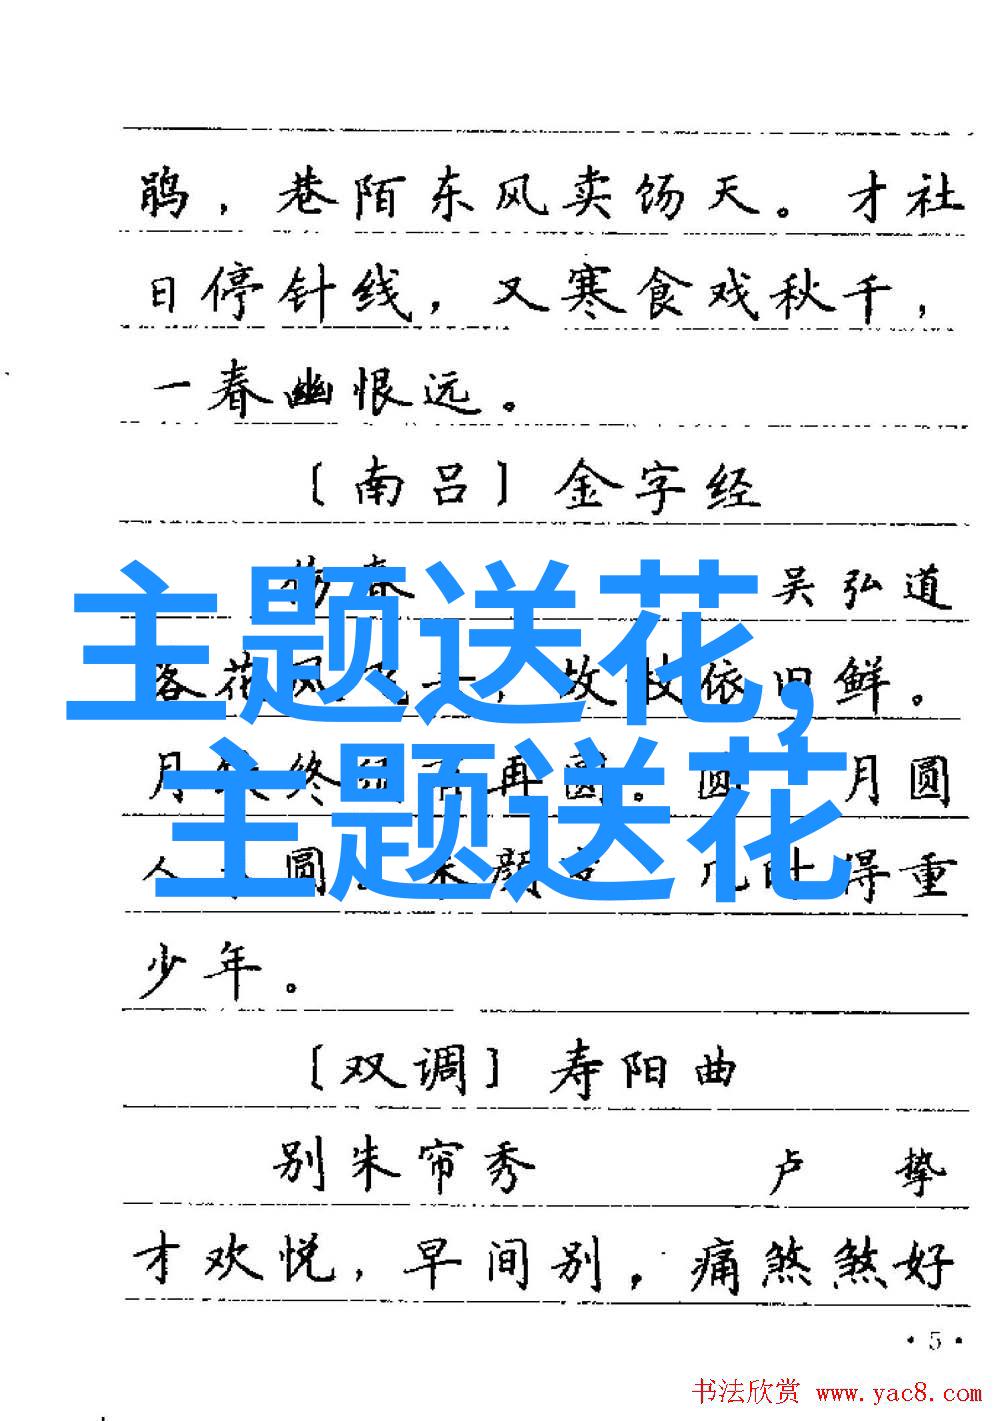 鹃，巷陌东风卖饧天。才社
日停针线，又寒食戏秋千，
一春幽恨远。
〔南吕〕金字经
春 吴弘道
主题送花，
落花风飞 ，故枝依旧鲜。
月缺终 再圆。圆 月圆
主题送花
人 圆。朱颜 几时得重
少年。
〔双调〕寿阳曲
别朱帘秀 卢挚
才欢悦，早间别，痛煞煞好
·5·
书法欣赏 www.yac8.com